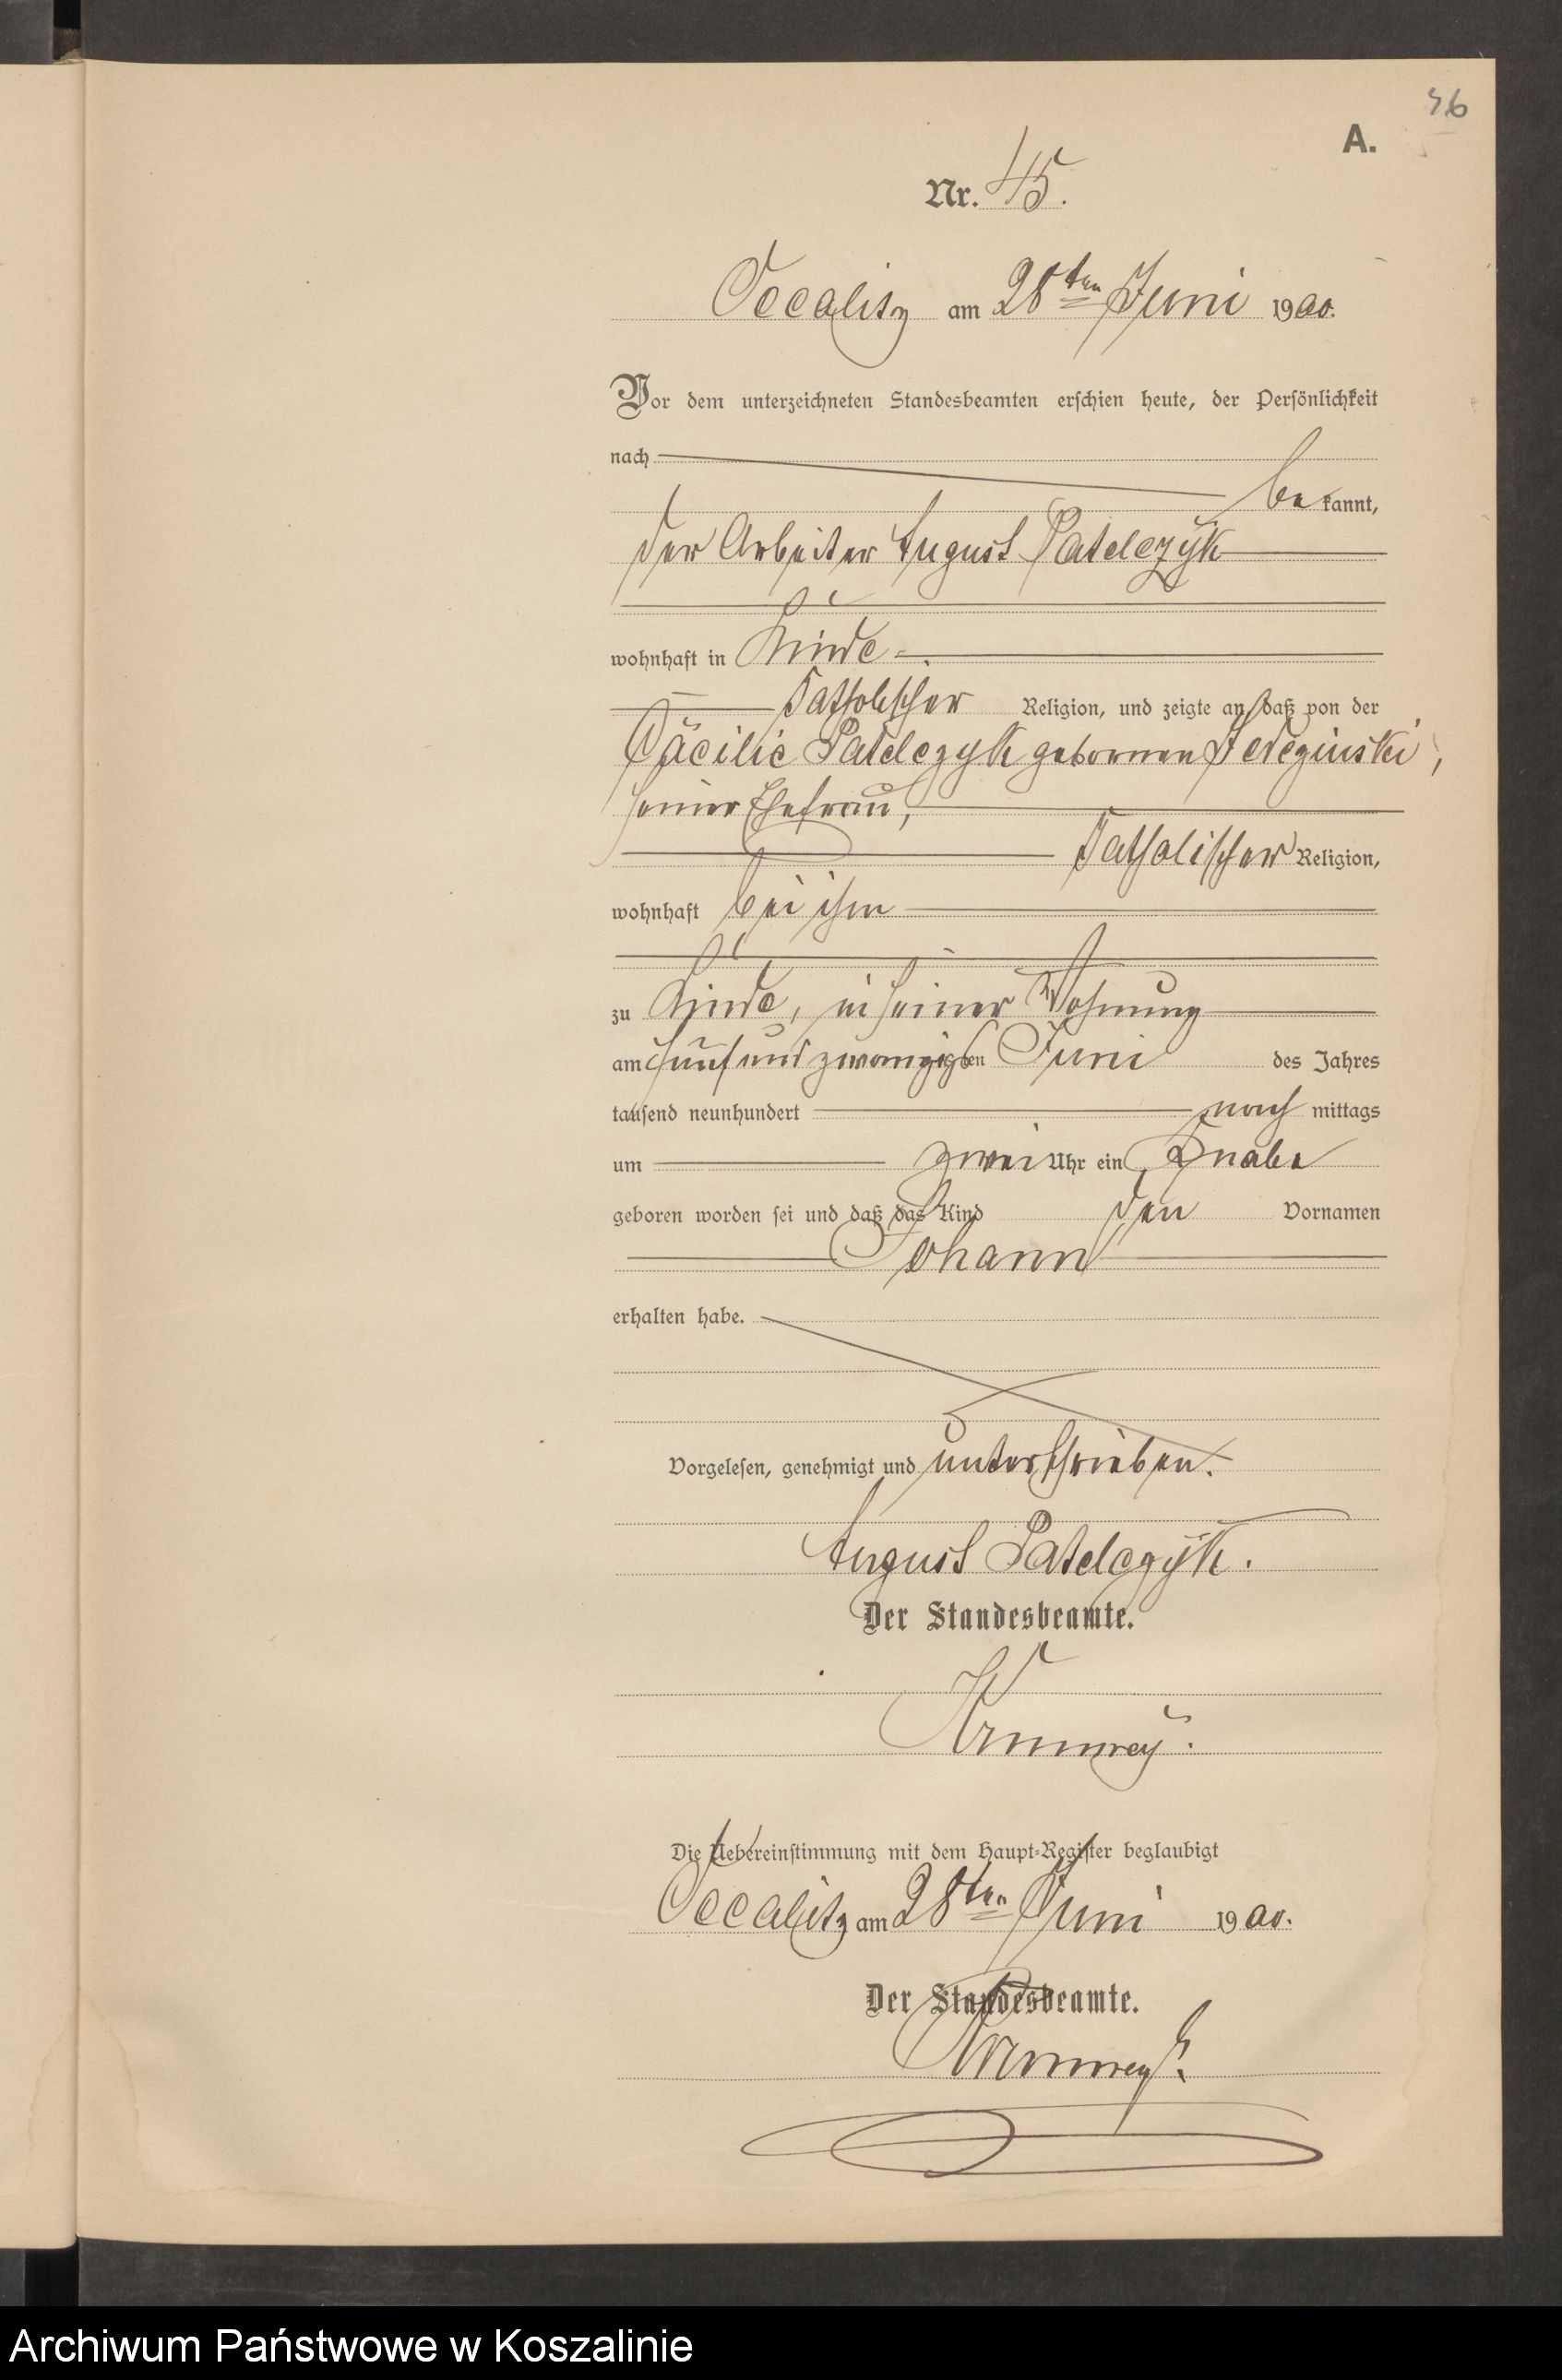 46
A.
Nr. 45.
Occalitz am 28ten Juni 1900.
Vor dem unterzeichneten Standesbeamten erschien heute, der Persönlichkeit
nach
bekannt,
der Arbeiter August Patelczyk
wohnhaft in Linde
katholischer Religion, und zeigte an, daß von der
Cäcilie Patelczyk gebornen,
seiner Ehefrau,
katholischer Religion,
wohnhaft bei ihm
zu Linde, in seiner Wohnung
am fünf und zwanzigsten Juni des Jahres
tausend neunhundert nach mittags
um zwei Uhr ein Knabe
geboren worden sei und daß das Kind den Vornamen
Johann
erhalten habe.
Vorgelesen, genehmigt und unterschrieben.
August Patelczyk.
Der Standesbeamte.
Krumrey.
Die Uebereinstimmung mit dem Haupt-Register beglaubigt
Occalitz am 28ten Juni 1900.
Der Standesbeamte.
Krumrey.
Archiwum Państwowe w Koszalinie